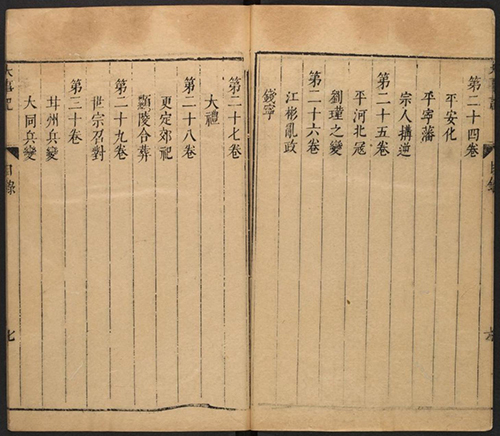 第二十四卷
平安化
平寧藩
宗人搆逆
第二十五卷
平河北冦
劉瑾之變
第二十六卷
江彬亂政
錢寧
第二十七卷
大禮
第二十八卷
更定郊祀
顯陵合葬
第二十九卷
世宗召對
第三十卷
甘州兵變
大同兵變
大事記
目錄
七